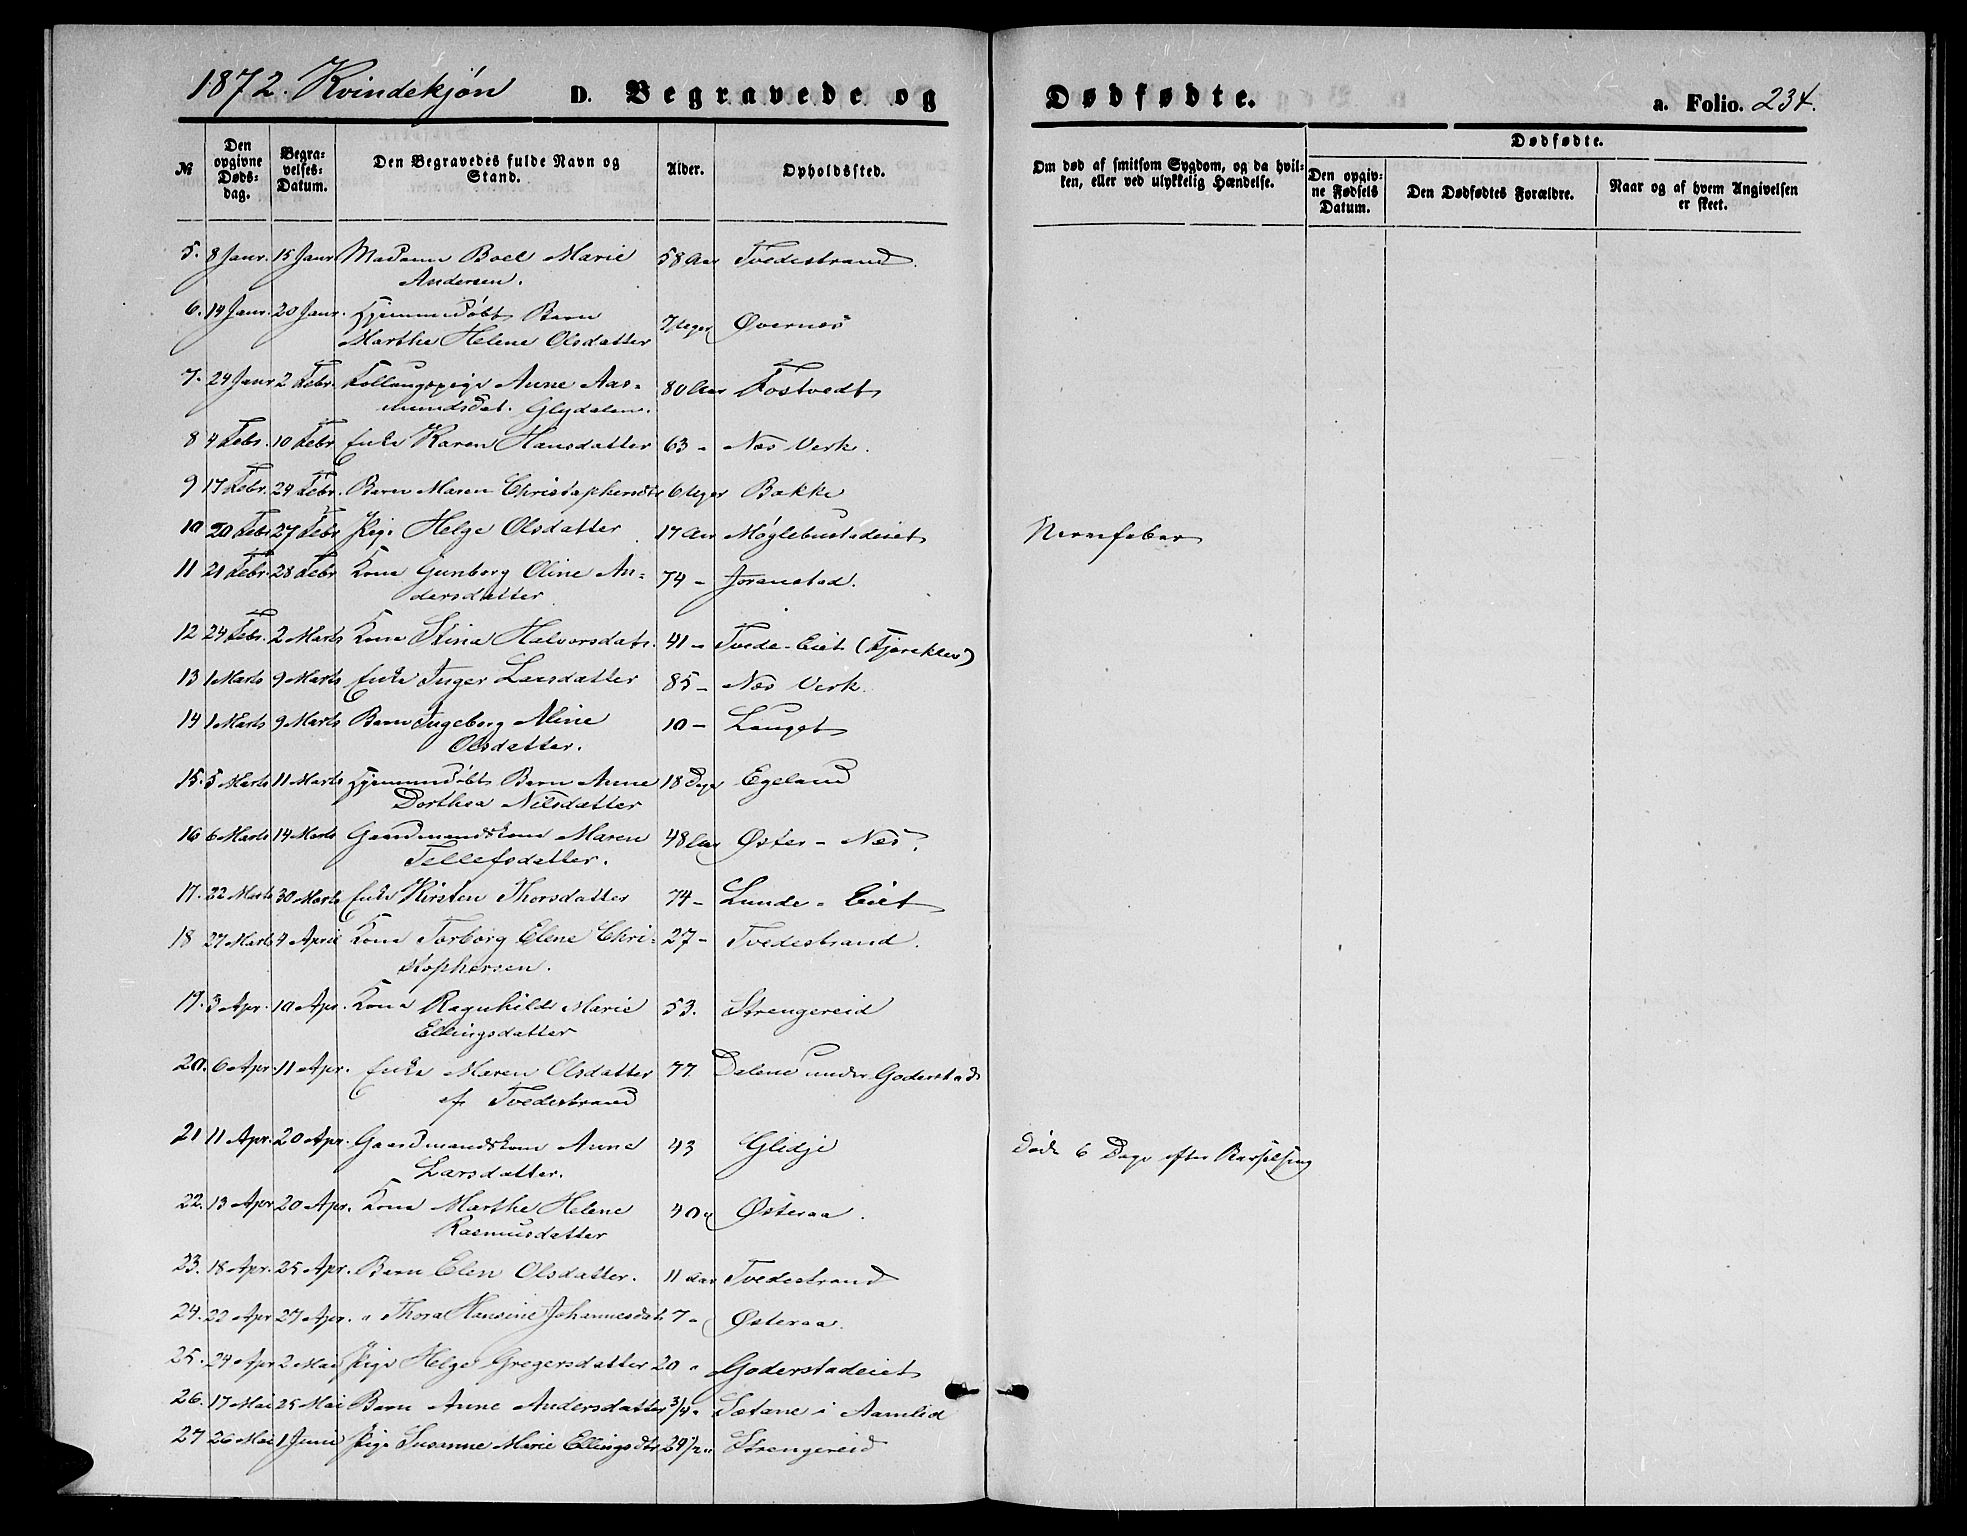 1872. Kvindekjøn D. Begravede og Dødfødte. a. Folio. 234.
Dødfødte.
№ Den opgivne Døds-dag. Begra-velses-Datum. Den Begravedes fulde Navn og Stand. Alder. Opholdssted. Om død af smitsom Sygdom, og da hvil-ken, eller ved ulykkelig Hændelse. Den opgiv-ne Fødsels Datum. Den Dødfødtes Forældre. Naar og af hvem Angivelsen er skeet.
5. 8 Janr. 15 Janr Madame Boel Marie 58 Aar Tvedestrand.
Andersen.
6. 14 Janr. 20 Janr. Hjemmedøbt Barn
Marthe Helene Olsdatter 7 Uger Øvernæs
7. 24 Janr 2 Febr. Anne Aas- 80 Aar Fostvedt
mundsdat. Glydalen.
8 4 Febr. 10 Febr Enke Karen Hansdatter 63 " Næs Verk.
9 17 Febr. 24 Febr. Barn Maren Christophersdtr 6 Uger Bakke
10 20 Febr 27 Febr Pige Helge Olsdatter 17 Aar Møglebustadeiet Nervefeber
11 21 Febr. 28 Febr Kone Gunborg Oline An- 74 " Joranstad.
dersdatter
12 24 Febr. 2 Marts Kone Stine Halvorsdatr. 41 " Tvede-Eiet (Fjærekleiv)
13 1 Marts 9 Marts Enke Inger Larsdatter 85 - Næs Verk.
14 1 Marts 9 Marts Barn Ingeborg Aline 10 - Lauget
Olsdatter.
15. 5 Marts 11 Marts Hjemmedøbt Barn Anne 18 Dage Egeland
Dorthea Nilsdatter
16 6 Marts 14 Marts Gaardmandskone Maren 48 Aar Øster-Næs.
Tellefsdatter.
17. 22 Marts 30 Marts Enke Kirsten Thorsdatter 74 - Lunde-Eiet
18 27 Marts 4 April Kone Torborg Elene Chri- 27 - Tvedestrand.
stophersen.
19. 3 Apr. 10 Apr. Kone Ragnhild Marie 53. Strengereid
Ellingsdatter
20. 6 Apr. 11 Apr. Enke Maren Olsdatter 77 Dalene under Goderstad
af Tvedestrand
21 11 Apr. 20 Apr. Gaardmandskone Anne 43 Glidje Døde 6 Dage efter Barselseng
Larsdatter.
22. 13 Apr 20 Apr. Kone Marthe Helene 40 " Østeraa.
Rasmusdatter
23. 18 Apr. 25 Apr. Barn Elen Olsdatter. 11 Aar Tvedestrand
24. 22 Apr 27 Apr. " Thora Hansine Johannesdatr 7 " Østeraa.
25. 24 Apr 2 Mai Pige Helge Gregersdatter 20 " Goderstadeiet
26. 17 Mai 25 Mai Barn Anne Andersdatter 3/4 " Sætane i Aamlid
27 26 Mai 1 Juni Pige Susanne Marie Ellingsdtr 24 1/2 " Strengereid